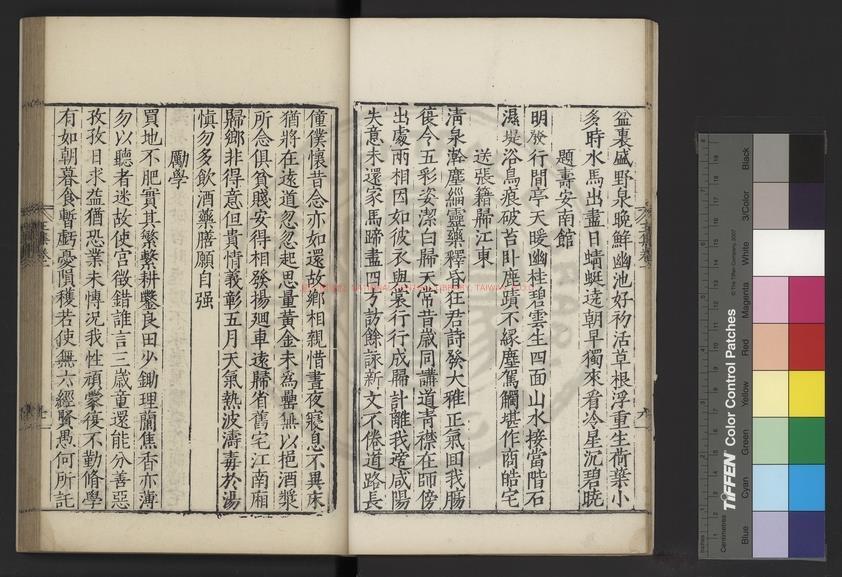 盆裏盛野泉晚鮮幽池好初活草根浮重生荷葉小
多時水馬出盡日蜻蜓遶朝早獨來看冷星沉碧曉
題壽安南館
明發行間亭天暖幽桂碧雲生四面山水接當階石
濕堤浴鳥痕破苔臥鹿蹟不緣塵駕觸堪作商皓宅
送張籍歸江東
清泉澣塵緇靈藥釋昏狂君詩發大雅正氣回我腸
復令五彩姿潔白歸天常昔歲同講道青襟在師傍
出處兩相因如彼衣與裳行行成歸計離我適咸陽
失意未還家馬蹄盡四方訪餘詠新文不倦道路長
僮僕懷昔念亦如還故鄉相親惜晝夜寢息不異床
猶將在遠道忽忽起思量黃金未爲罍無以挹酒漿
所念俱貧賤安得相發揚迴車遠歸省舊宅江南廂
歸鄉非得意但貴情義彰五月天氣熱波濤毒於湯
慎勿多飲酒藥膳願自强
勵學
買地不肥實其繁繫耕鑿良田少鋤理蘭焦香亦薄
勿以聽者迷故使宮徵錯誰言三歲童還能分善惡
孜孜日求益猶恐業未博況我性頑蒙復不勤修學
有如朝暮食暫虧憂隕穫若使無六經賢愚何所託